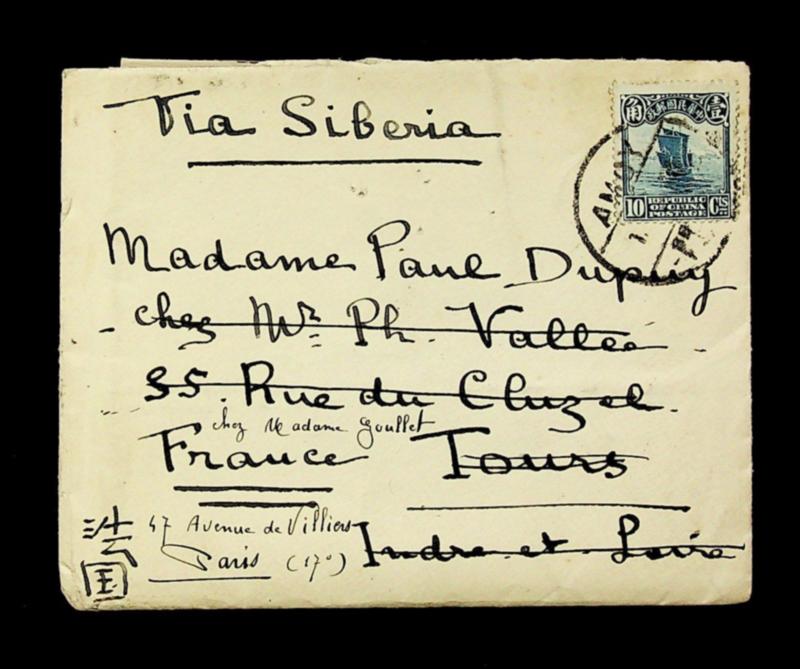 Via Siberia
角 中華民國郵政 壹
10 REPUBLIC OF CHINA POSTAGE Cts
AMOY
Madame Paul Dupuy
chez Mr. Ph. Vallée
35. Rue du Cluzel.
chez Madame Goullet
France Tours
法国
47 Avenue de Villiers
Paris (17e)
Indre et Loire